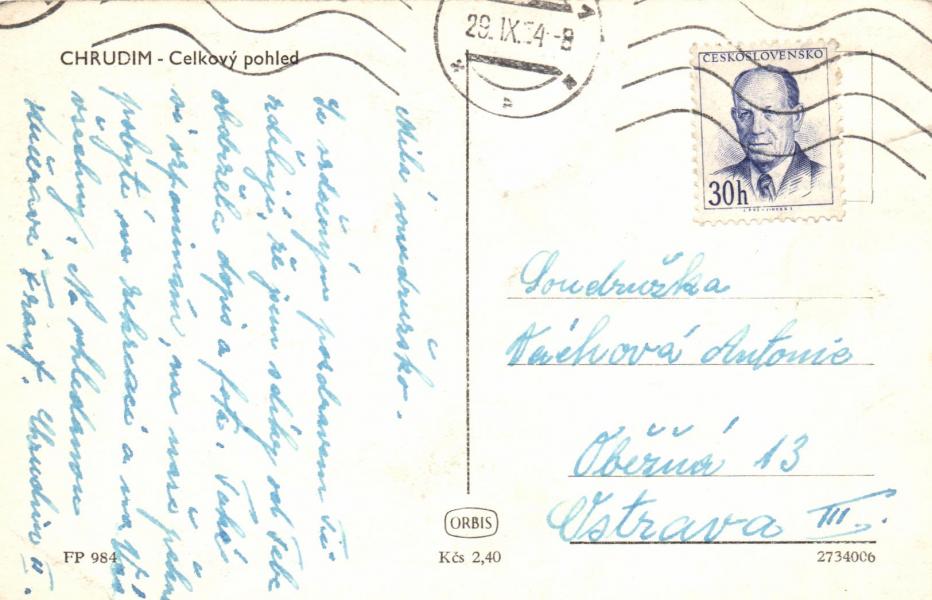 CHRUDIM - Celkový pohled
29. IX. 54 - 8
ČESKOSLOVENSKO
30h
Milá soudružko.
Se srdečným pozdravem Ti
sděluji, že jsem s díky od Tebe
obdržela dopis a foto. Také
si vzpomínám, na naše pěkné
pobyti na rekreaci a na Vás
všechny. Na shledanou
Kučerová Frant. Chrudim II.
Soudružka
Váchová Antonie
Oběžná 13
Ostrava III.
ORBIS
FP 984
Kčs 2,40
2734006